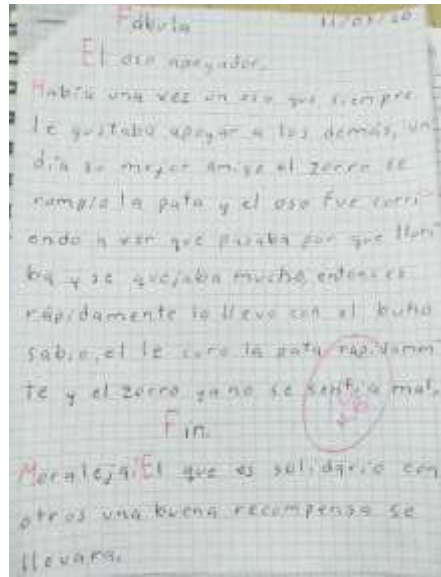 Fabula 11/05/20
El oso apoyador.
Habia una vez un oso que siempre
le gustaba apoyar a los demás, un
día su mejor amigo el zorro se
rompio la pata y el oso fue corri
endo a ver que pasaba por que llora
ba y se quejaba mucho, entonces
rápidamente lo llevo con el buho
sabio, el le curo la pata rapidamen
te y el zorro ya no se sentia mal.
Fin.
Moraleja: El que es solidario con
otros una buena recompensa se
llevara.